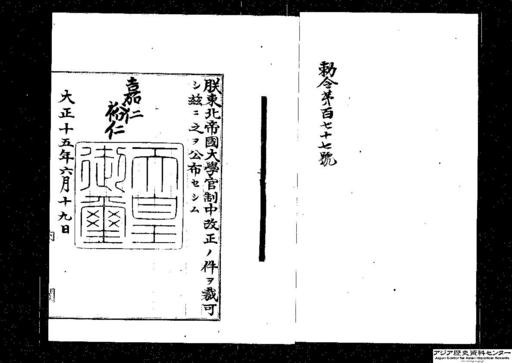 勅令第百七十七號
朕東北帝國大學官制中改正ノ件ヲ裁可
シ玆ニ之ヲ公布セシム
嘉仁
裕仁
天皇
御璽
大正十五年六月十九日
内閣
アジア歴史資料センター
Japan Center for Asian Historical Records